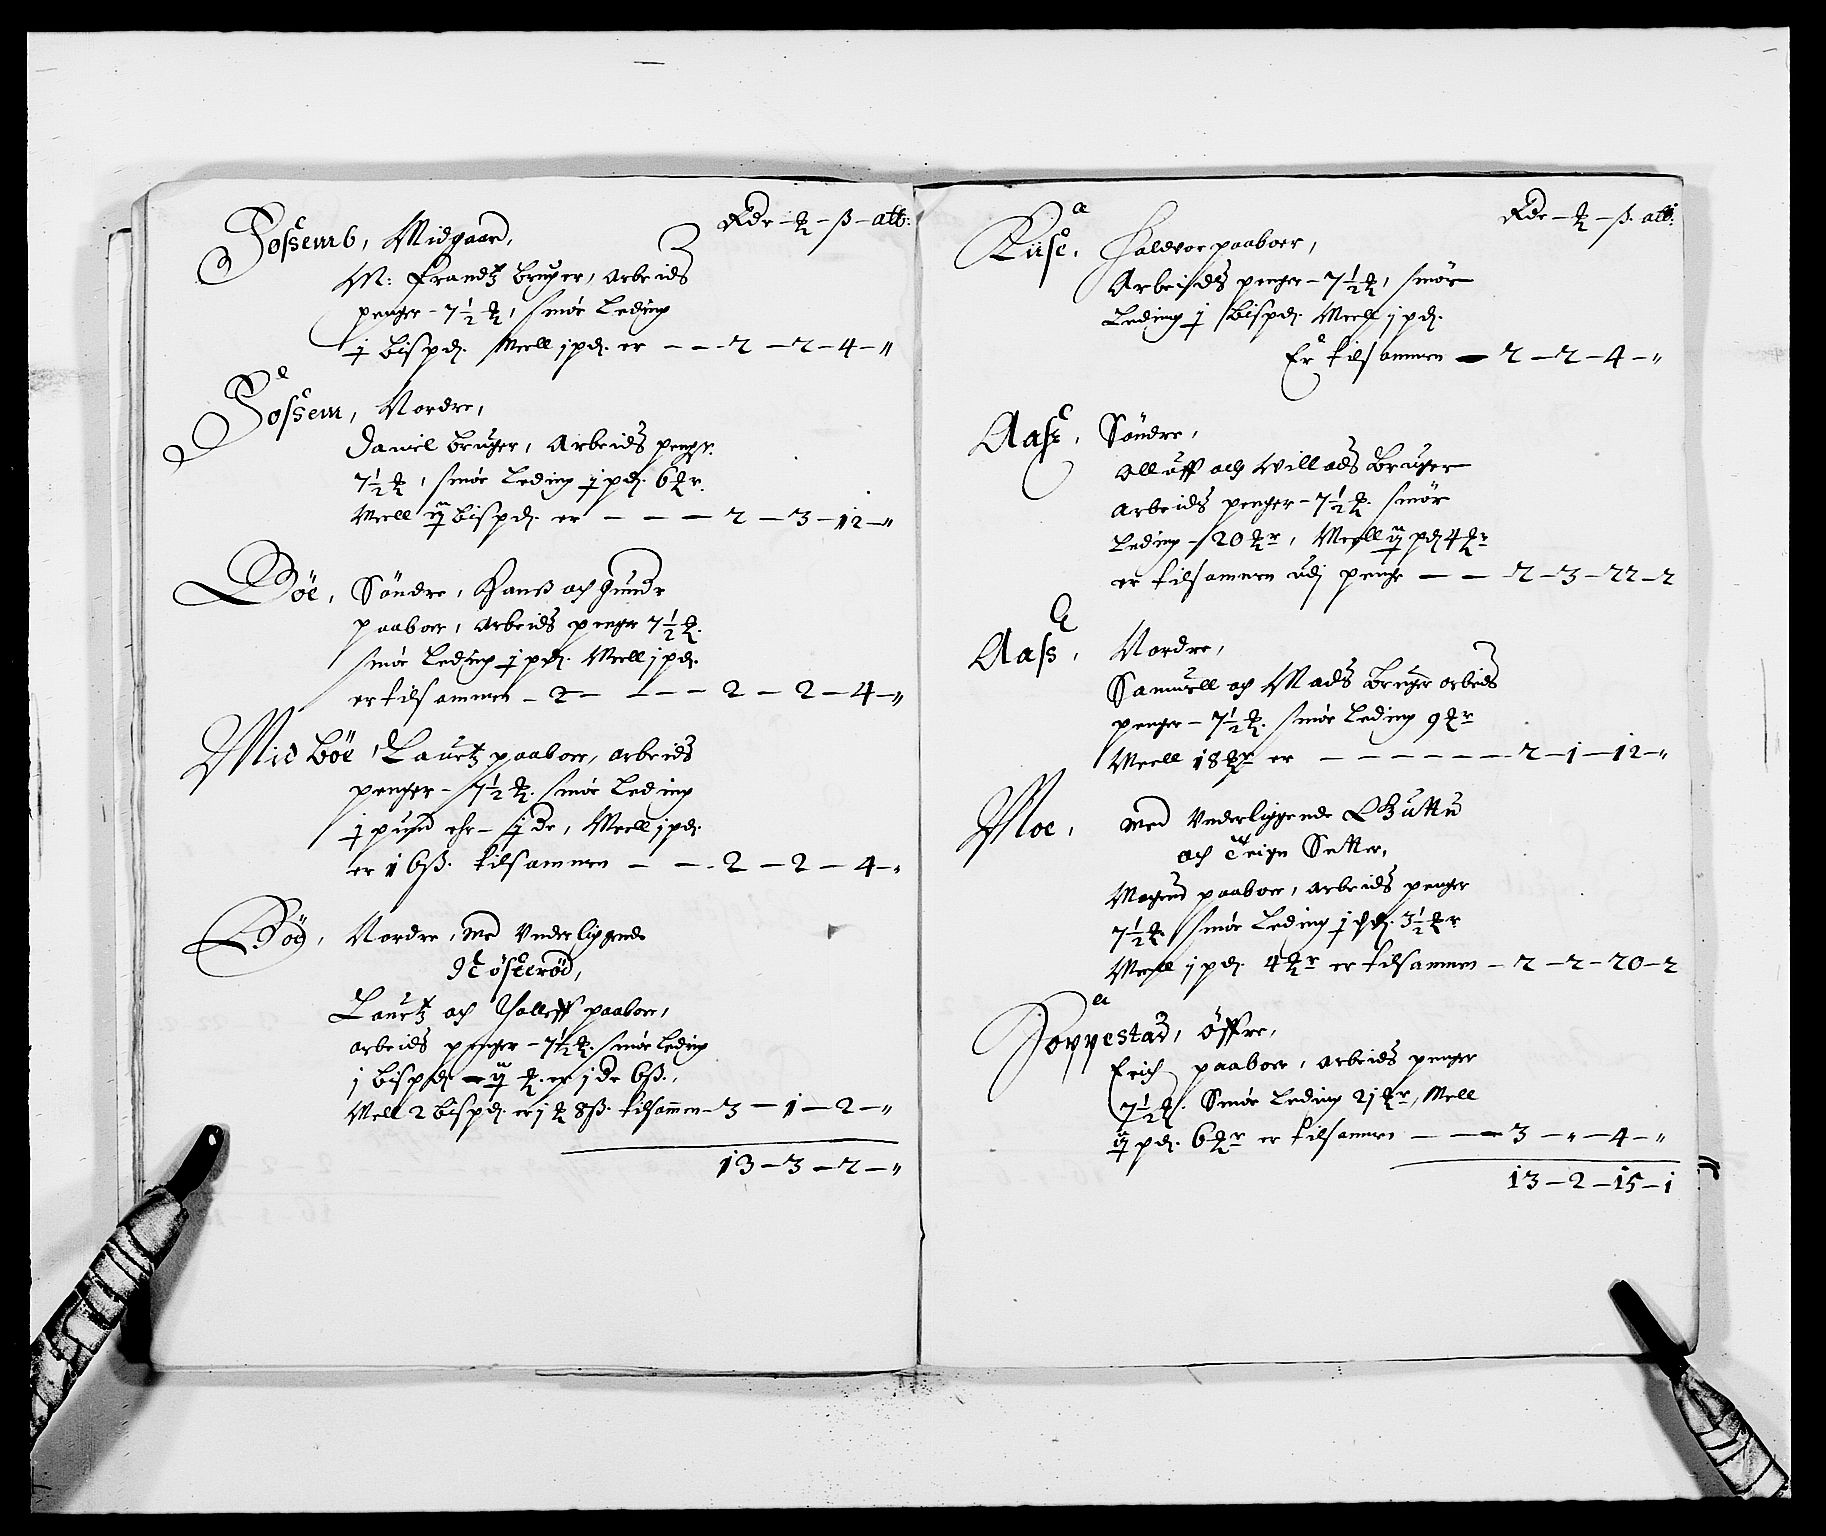 Rdr – ₰ – ß – alb:
Fossemb, Midgaard,
M: Frandtz Bruger, Arbeids
penger – 7½ ₰, smör Leding
j Bispd. Meell j pd. er – – – 2 – 2 – 4 – "
Fossem, Nordre,
Daniel Bruger, Arbeids penger
7½ ₰, smör Leding j pd. 6 ₰r.
Meell ij Bispd. er – – – 2 – 3 – 12 – "
Böe, Söndre, Hanß och Gundr
paaboer, Arbeids penger 7½ ₰.
smör Leding j pd. Meell j pd.
er tilsammen – – – – 2 – 2 – 4 – "
Midböe, Lauritz paaboer, arbeids
penger – 7½ ₰. smör Leding
j pund ehr – j dr, Meell j pd.
er 1 6 ß. tilsammen – – – 2 – 2 – 4 – "
Böe, Nordre, med Vnderliggende
Lauritz och Halleff paaboer,
arbeids penger – 7½ ₰. smör Leding
j Bispd – ij ₰. er j dr 6 ß.,
Mell 2 Bispd. er j ₰ 8 ß. tilsammen – 3 – 1 – 2 – "
13 – 3 – 2 – "
Rdr – ₰ – ß – alb:
Riise, Haldvor paaboer,
Arbeids penger – 7½ ₰, smör
Leding j Bispd. Meell j pd.
Er tilsammen – 2 – 2 – 4 – "
Aass, Söndre,
Olluff och Willads Bruger
Arbeids penger – 7½ ₰. smör
Leding – 20 ₰r, Meell ij pd 4 ₰r
er tilsammen udj penge – – 2 – 3 – 22 – 2
Aass, Nordre,
Samuell och Mads Bruger arbeids
penger – 7½ ₰. smör Leding 9 ₰r
Meell 18 ₰r er – – – – – – 2 – 1 – 12 – "
Moe, med Vnderliggende Guttu
och Teige Setter,
Mogend paaboer, arbeids penger
7½ ₰ smör Leding j pd. 3½ ₰r
Meell j pd. 4 ₰r er tilsammen – 2 – 2 – 20 – 2
Joppestad, Öffre,
Erich paaboer, arbeids penger
7½ ₰. Smör Leding 21 ₰r, Mell
ij pd. 6 ₰r er tilsammen – – – 3 – " – 4 – "
13 – 2 – 15 – 1